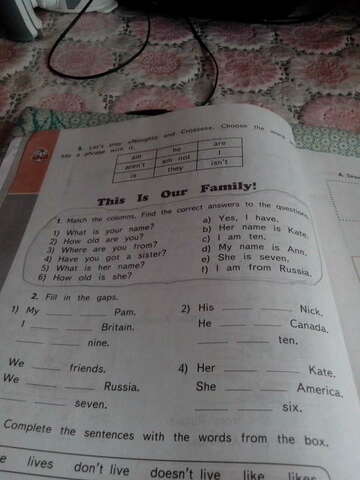 5. Let's play «Noughts and Crosses». Choose the word
Say a phrase with it.
am he are
aren't am not I
is they isn't
This Is Our Family!
1. Match the columns. Find the correct answers to the questions.
1) What is your name? a) Yes, I have.
2) How old are you? b) Her name is Kate.
3) Where are you from? c) I am ten.
4) Have you got a sister? d) My name is Ann.
5) What is her name? e) She is seven.
6) How old is she? f) I am from Russia.
2. Fill in the gaps.
1) My ___ ___ Pam. 2) His ___ ___ Nick.
I ___ ___ Britain. He ___ ___ Canada.
___ ___ nine. ___ ___ ten.
We ___ friends. 4) Her ___ ___ Kate.
We ___ ___ Russia. She ___ ___ America.
___ ___ seven. ___ ___ six.
Complete the sentences with the words from the box.
lives don't live doesn't live like likes